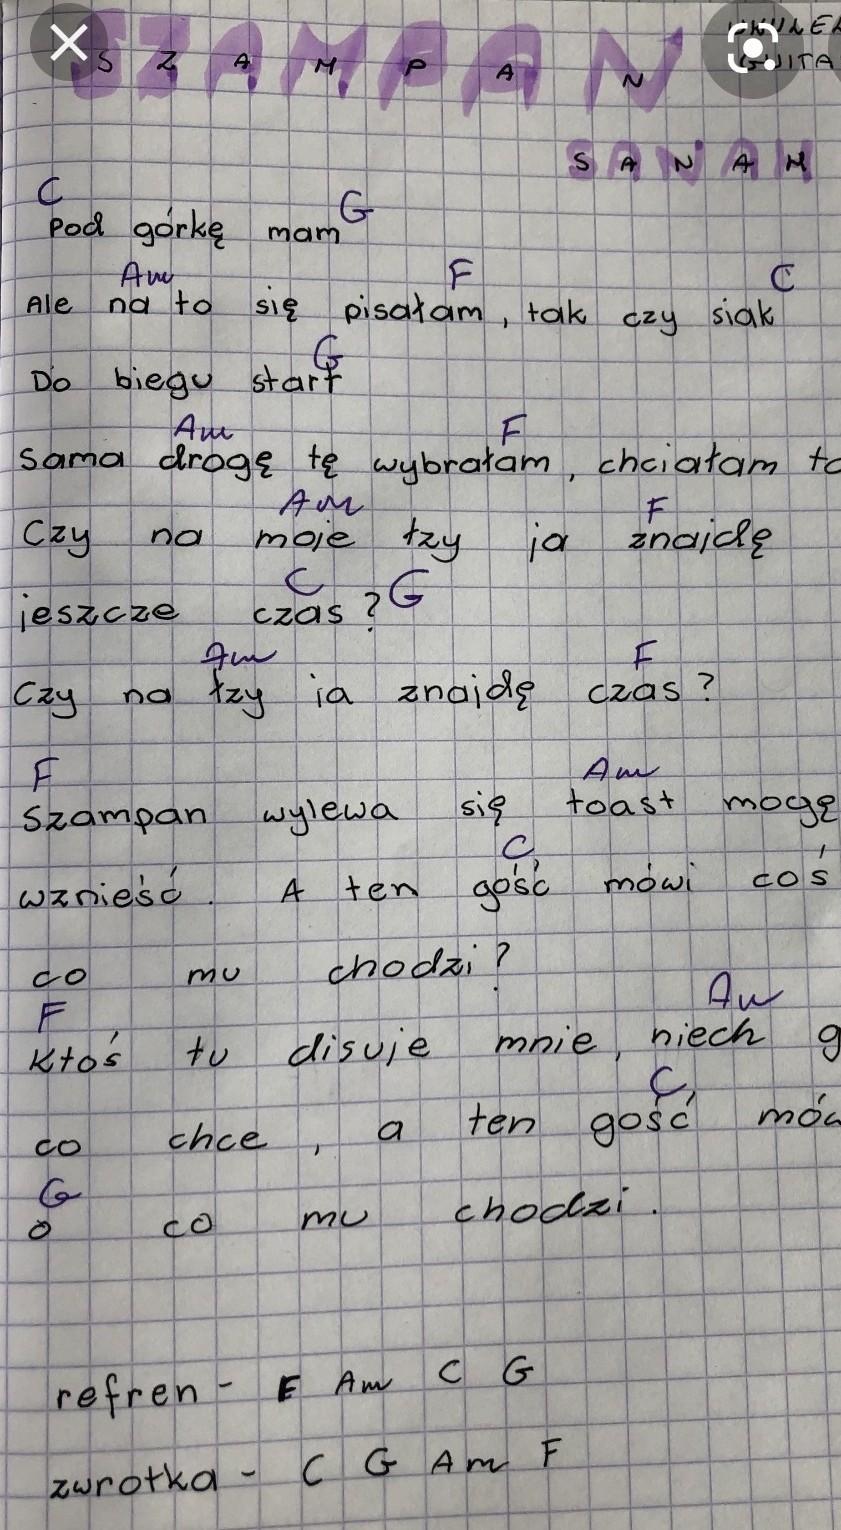 SZAMPAN
S Z A M P A N
SANAH
C G
Pod górkę mam
Am F C
Ale na to się pisałam, tak czy siak
G
Do biegu start
Am F
Sama drogę tę wybrałam, chciałam
Am F
Czy na moje łzy ja znajdę
C G
jeszcze czas?
Am F
Czy na łzy ja znajdę czas?
F Am
Szampan wylewa się toast mogę
C
wznieść. A ten gość mówi coś
co mu chodzi?
F Am
Ktoś tu disuje mnie, niech
C
co chce, a ten gość
G
o co mu chodzi.
refren - F Am C G
zwrotka - C G Am F